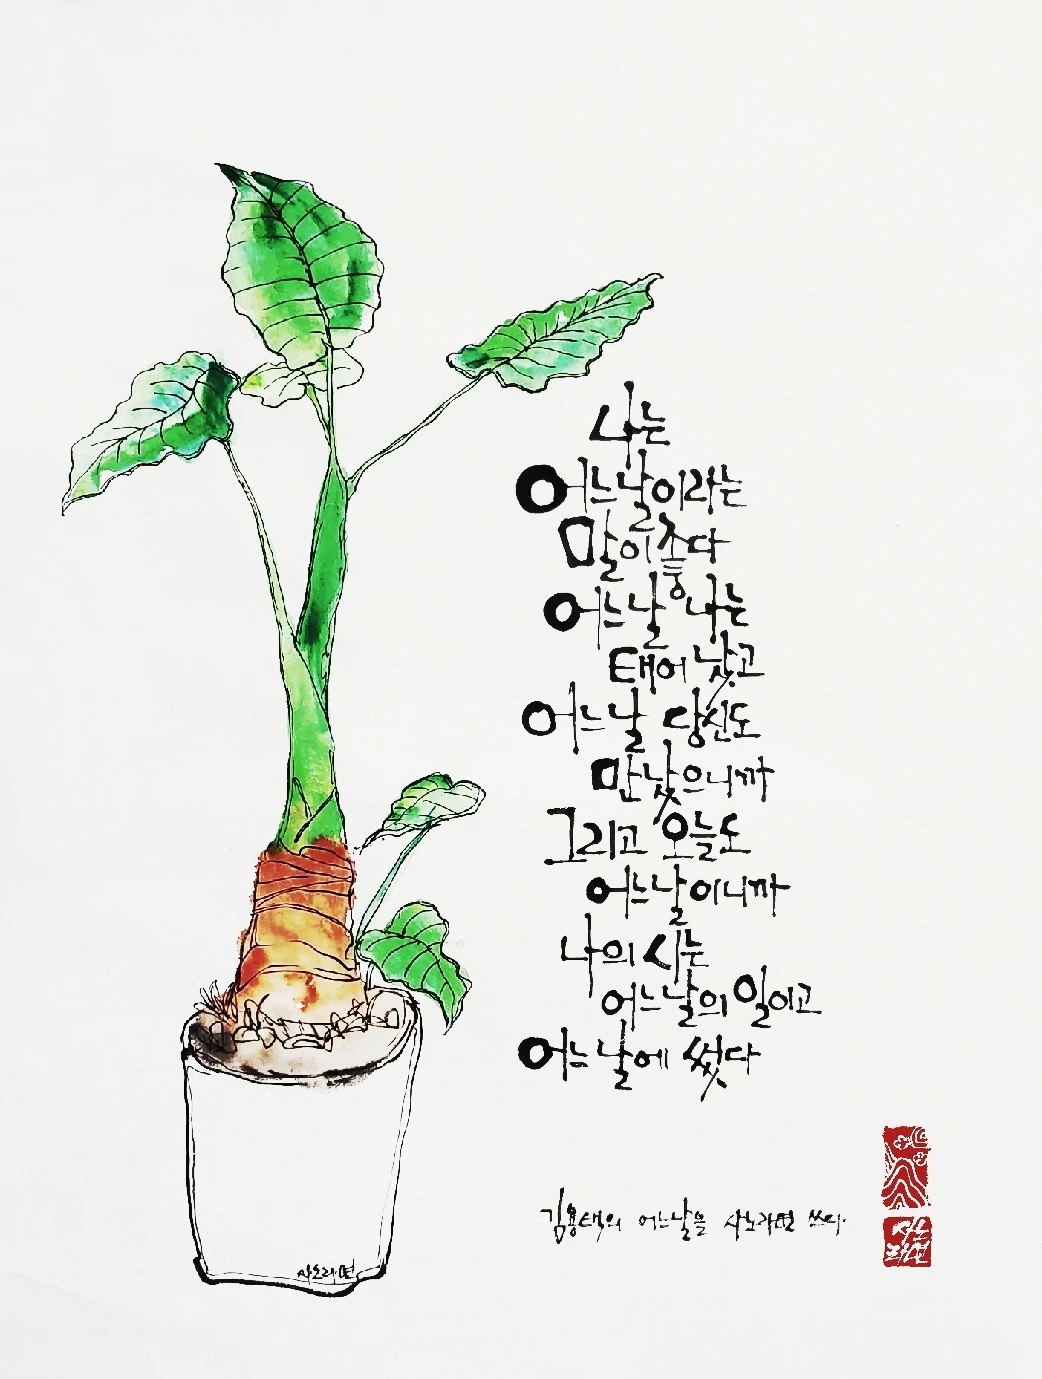 나는
어느날이라는
말이 좋다
어느날 나는
태어 났고
어느날 당신도
만났으니까
그리고 오늘도
어느날이니까
나의 시는
어느날의 일이고
어느날에 썼다
김용택의 어느날을 사노라면 쓰다.
사노라면
사노라면